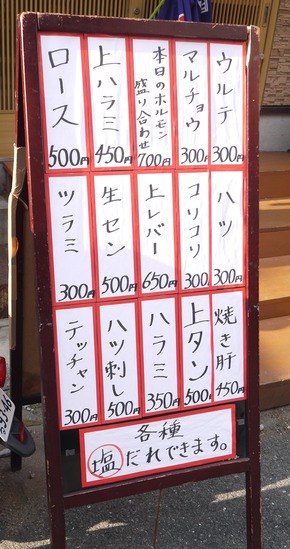 ウルテ
300円
マルチョウ
300円
本日のホルモン
盛り合わせ
700円
上ハラミ
450円
ロース
500円
ハツ
300円
コリコリ
300
上レバー
650円
生セン
500円
ツラミ
300円
焼き肝
450円
上タン
500円
ハラミ
350円
ハツ刺し
500円
テッチャン
300円
各種
塩だれできます。